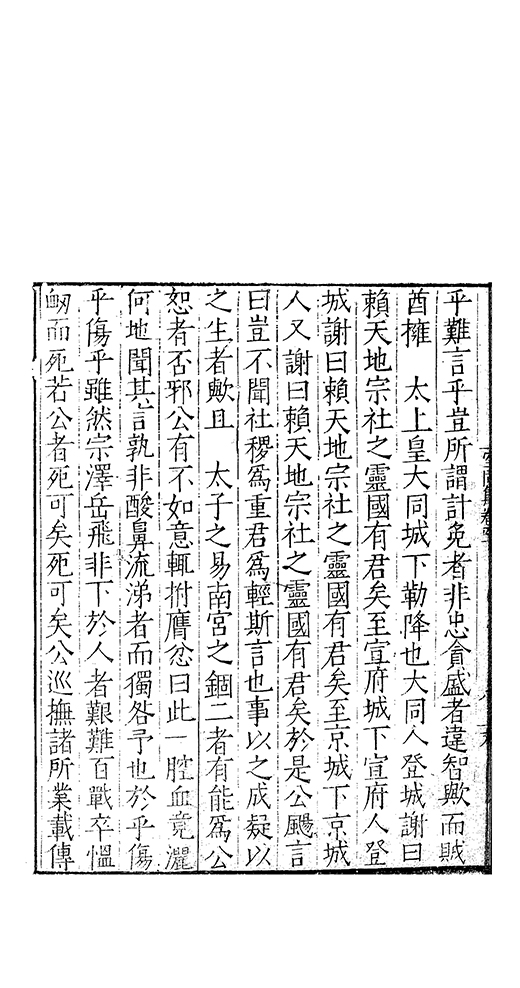 乎難言乎豈所謂計免者非忠貪盛者違智歟而賊
酋擁　太上皇大同城下勒降也大同人登城謝曰
賴天地宗社之靈國有君矣至宣府城下宣府人登
城謝曰賴天地宗社之靈國有君矣至京城下京城
人又謝曰賴天地宗社之靈國有君矣於是公颺言
曰豈不聞社稷爲重君爲輕斯言也事以之成疑以
之生者歟且　太子之易南宮之錮二者有能爲公
恕者否邪公有不如意輒拊膺忿曰此一腔血竟灑
何地聞其言孰非酸鼻流涕者而獨咎予也於乎傷
乎傷乎雖然宗澤岳飛非下於人者艱難百戰卒慍
衂而死若公者死可矣死可矣公巡撫諸所業載傳